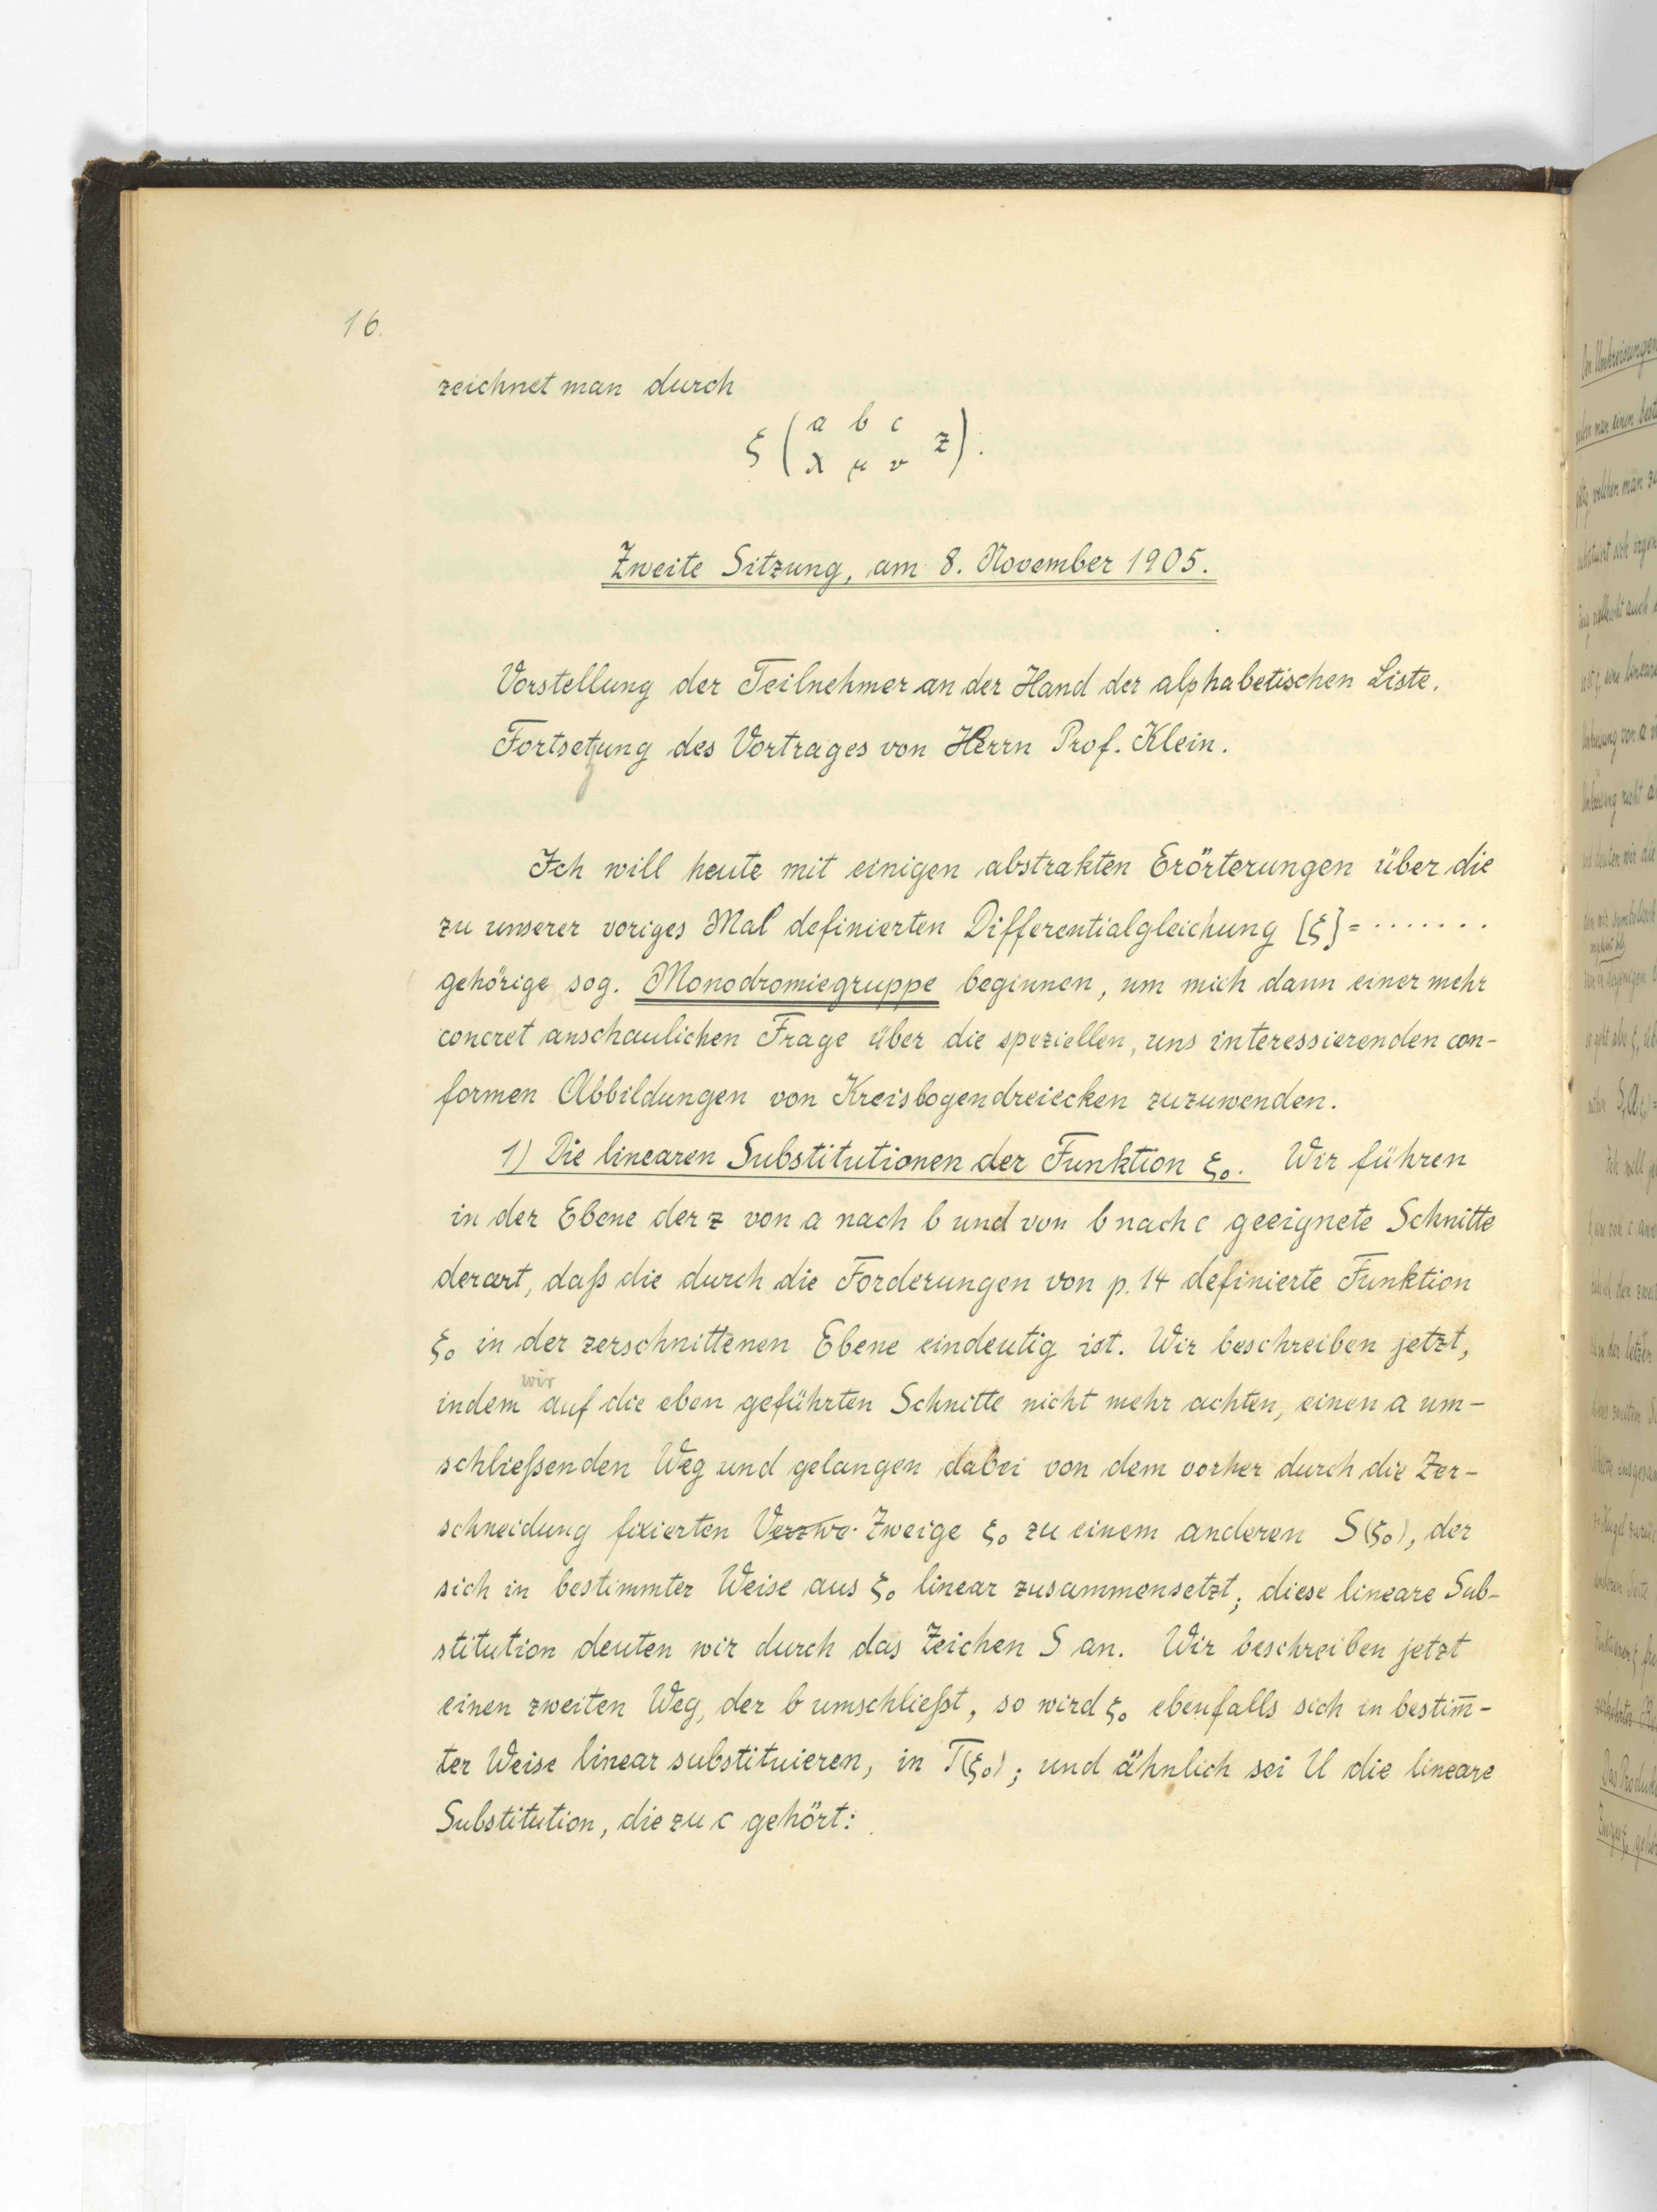 16.
zeichnet man durch
ξ ( a b c
λ μ ν z ).
Zweite Sitzung, am 8. November 1905.
Vorstellung der Teilnehmer an der Hand der alphabetischen Liste.
Fortsetzung des Vortrages von Herrn Prof. Klein.
Ich will heute mit einigen abstrakten Erörterungen über die
zu unserer voriges Mal definierten Differentialgleichung [ξ] = .......
gehörige sog. Monodromiegruppe beginnen, um mich dann einer mehr
concret anschaulichen Frage über die speziellen, uns interessierenden con-
formen Abbildungen von Kreisbogendreiecken zuzuwenden.
1) Die linearen Substitutionen der Funktion ξ₀. Wir führen
in der Ebene der z von a nach b und von b nach c geeignete Schnitte
derart, daß die durch die Forderungen von p. 14 definierte Funktion
ξ₀ in der zerschnittenen Ebene eindeutig ist. Wir beschreiben jetzt,
indem wir auf die eben geführten Schnitte nicht mehr achten, einen a um-
schließenden Weg und gelangen dabei von dem vorher durch die Zer-
schneidung fixierten Verzwe. Zweige ξ₀ zu einem anderen S(ξ₀), der
sich in bestimmter Weise aus ξ₀ linear zusammensetzt; diese lineare Sub-
stitution deuten wir durch das Zeichen S an. Wir beschreiben jetzt
einen zweiten Weg, der b umschließt, so wird ξ₀ ebenfalls sich in bestim̄-
ter Weise linear substituieren, in T(ξ₀); und ähnlich sei U die lineare
Substitution, die zu c gehört: